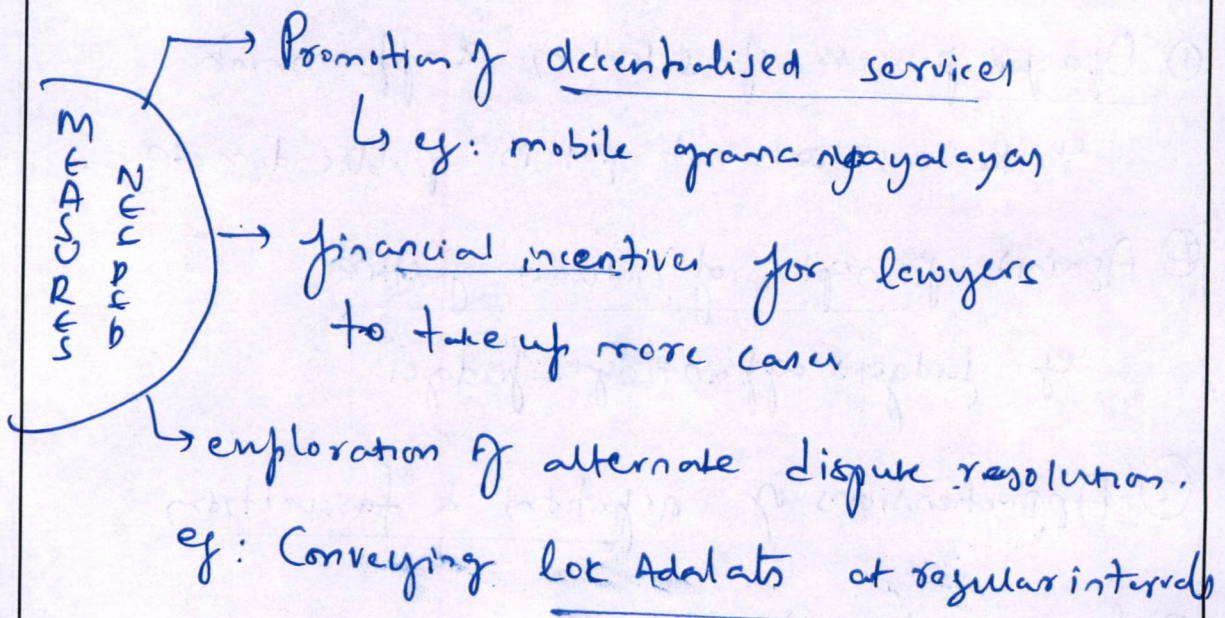 MEASURES
NEEDED
Promotion of decentralised services
eg: mobile grama nyayalayas
financial incentives for lawyers
to take up more cases
exploration of alternate dispute resolution.
eg: Conveying lok Adalats at regular intervals